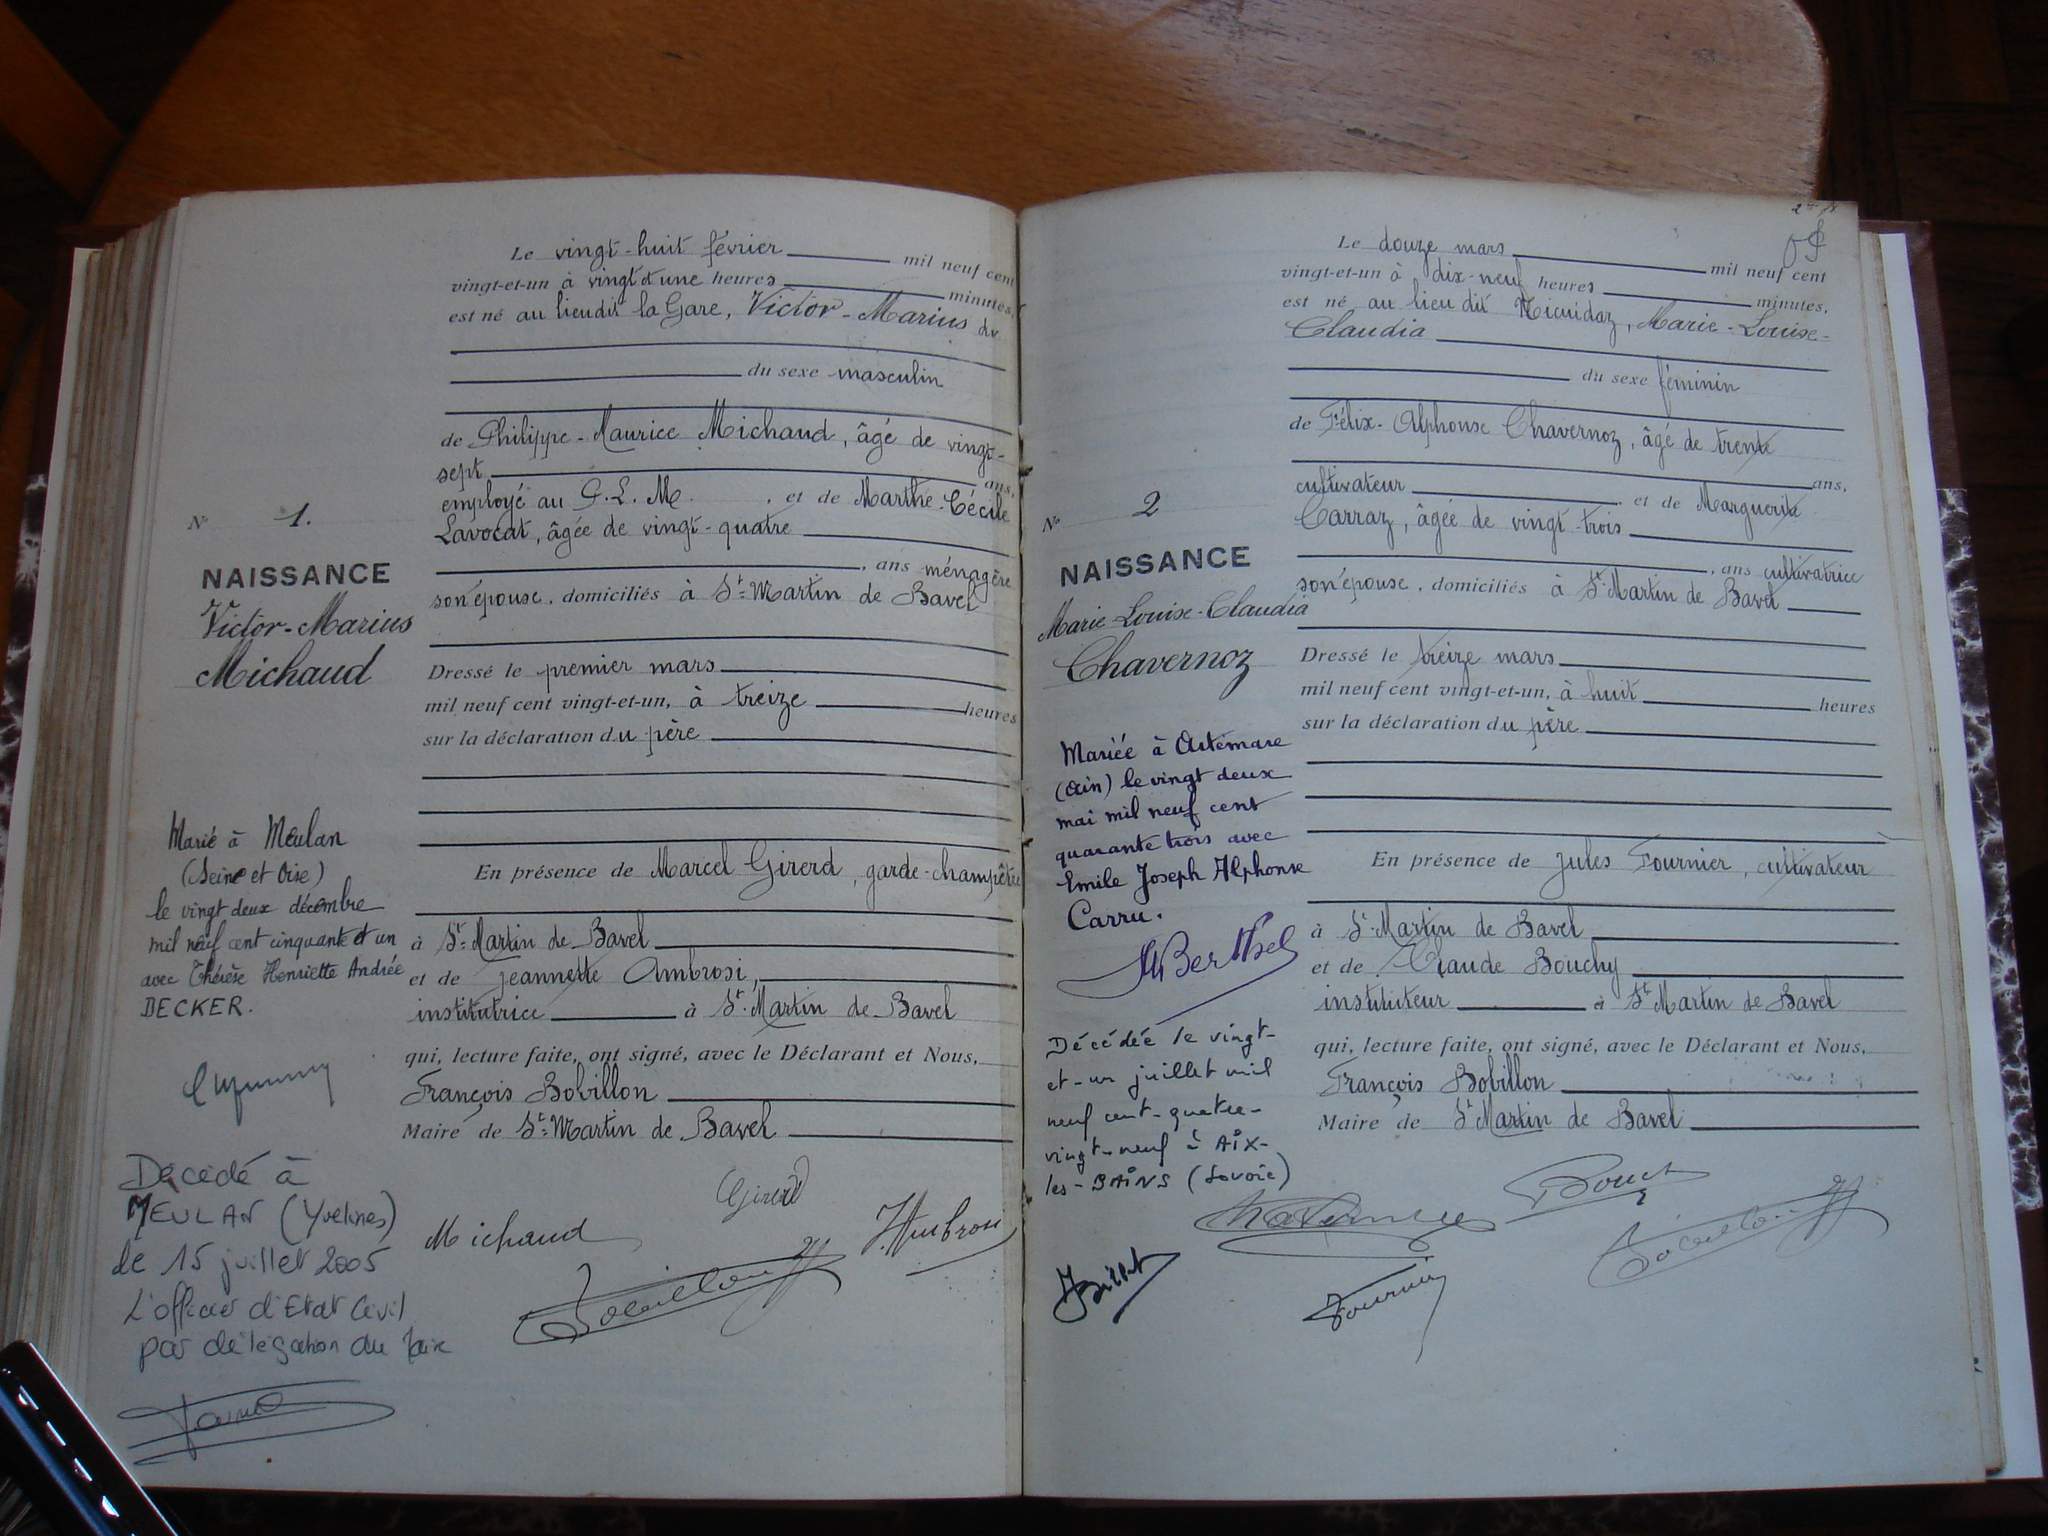 Le vingt-huit février mil neuf cent
vingt-et-un à vingt et une heures minutes,
est né au lieudit la Gare, Victor-Marius du
du sexe masculin
de Philippe-Maurice Michaud, âgé de vingt-
sept ans,
employé au G.L.M. , et de Marthe-Cécile
Lavocat, âgée de vingt-quatre
, ans ménagère
son épouse, domiciliés à St-Martin de Bavel
N° 1.
NAISSANCE
Victor-Marius
Michaud
Dressé le premier mars
mil neuf cent vingt-et-un, à treize heures
sur la déclaration du père
Marié à Meulan
(Seine et Oise)
le vingt deux décembre
mil neuf cent cinquante et un
avec Thérèse Henriette Andrée
DECKER.
En présence de Marcel Girerd, garde-champêtre
à St-Martin de Bavel
et de Jeannette Ambrosi,
institutrice à St-Martin de Bavel
qui, lecture faite, ont signé, avec le Déclarant et Nous,
François Bobillon
Maire de St-Martin de Bavel
Décédé à
MEULAN (Yvelines)
le 15 juillet 2005
L'officier d'Etat Civil
par délégation du Maire
Michaud
Girerd
J. Ambrosi
Bobillon
Le douze mars mil neuf cent
vingt-et-un à dix-neuf heures minutes,
est né au lieu dit , Marie-Louise-
Claudia
du sexe féminin
de Félix-Alphonse Chavernoz, âgé de trente
ans,
cultivateur et de Marguerite
Carraz, âgée de vingt-trois
, ans cultivatrice
son épouse, domiciliés à St Martin de Bavel
N° 2
NAISSANCE
Marie-Louise-Claudia
Chavernoz
Dressé le treize mars
mil neuf cent vingt-et-un, à huit heures
sur la déclaration du père
Mariée à Artemare
(Ain) le vingt deux
mai mil neuf cent
quarante trois avec
Emile Joseph Alphonse
Carru.
En présence de Jules Fournier, cultivateur
à St Martin de Bavel
et de Claude Bouchy
instituteur à St Martin de Bavel
qui, lecture faite, ont signé, avec le Déclarant et Nous,
François Bobillon
Maire de St Martin de Bavel
Décédée le vingt-
et-un juillet mil
neuf cent-quatre-
vingt-neuf à AIX-
les-BAINS (Savoie)
Chavernoz
Bouchy
Bobillon
Fournier